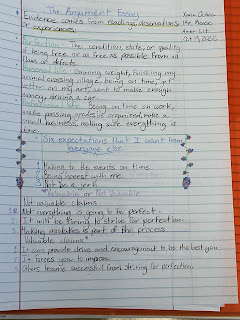 The Argument Essay
Evidence comes from reading, observations,
or experiences.
Perfection: The condition, state, or quality
of being free or as free as possible from all
flaws or defects.
Personal life: Gaining weight, finishing my
animal crossing village, being on time, get
better on my art, want to make enough
money, driving a car.
life: Being on time on work,
make passing grades, organized, make a
small business, making sure everything is
done.
Six expectations that I want from
everyone else
Making to the events on time.
Being honest with me.
Not be a jerk
Valuable or Not Valuable
Not valuable claims
Not everything is going to be perfect.
It will be tiring to strive for perfection.
Making mistakes is part of the process.
Valuable claims
It can provide drive and encouragement to be the best you
It forces you to improve
Others become successful from striving for perfection.